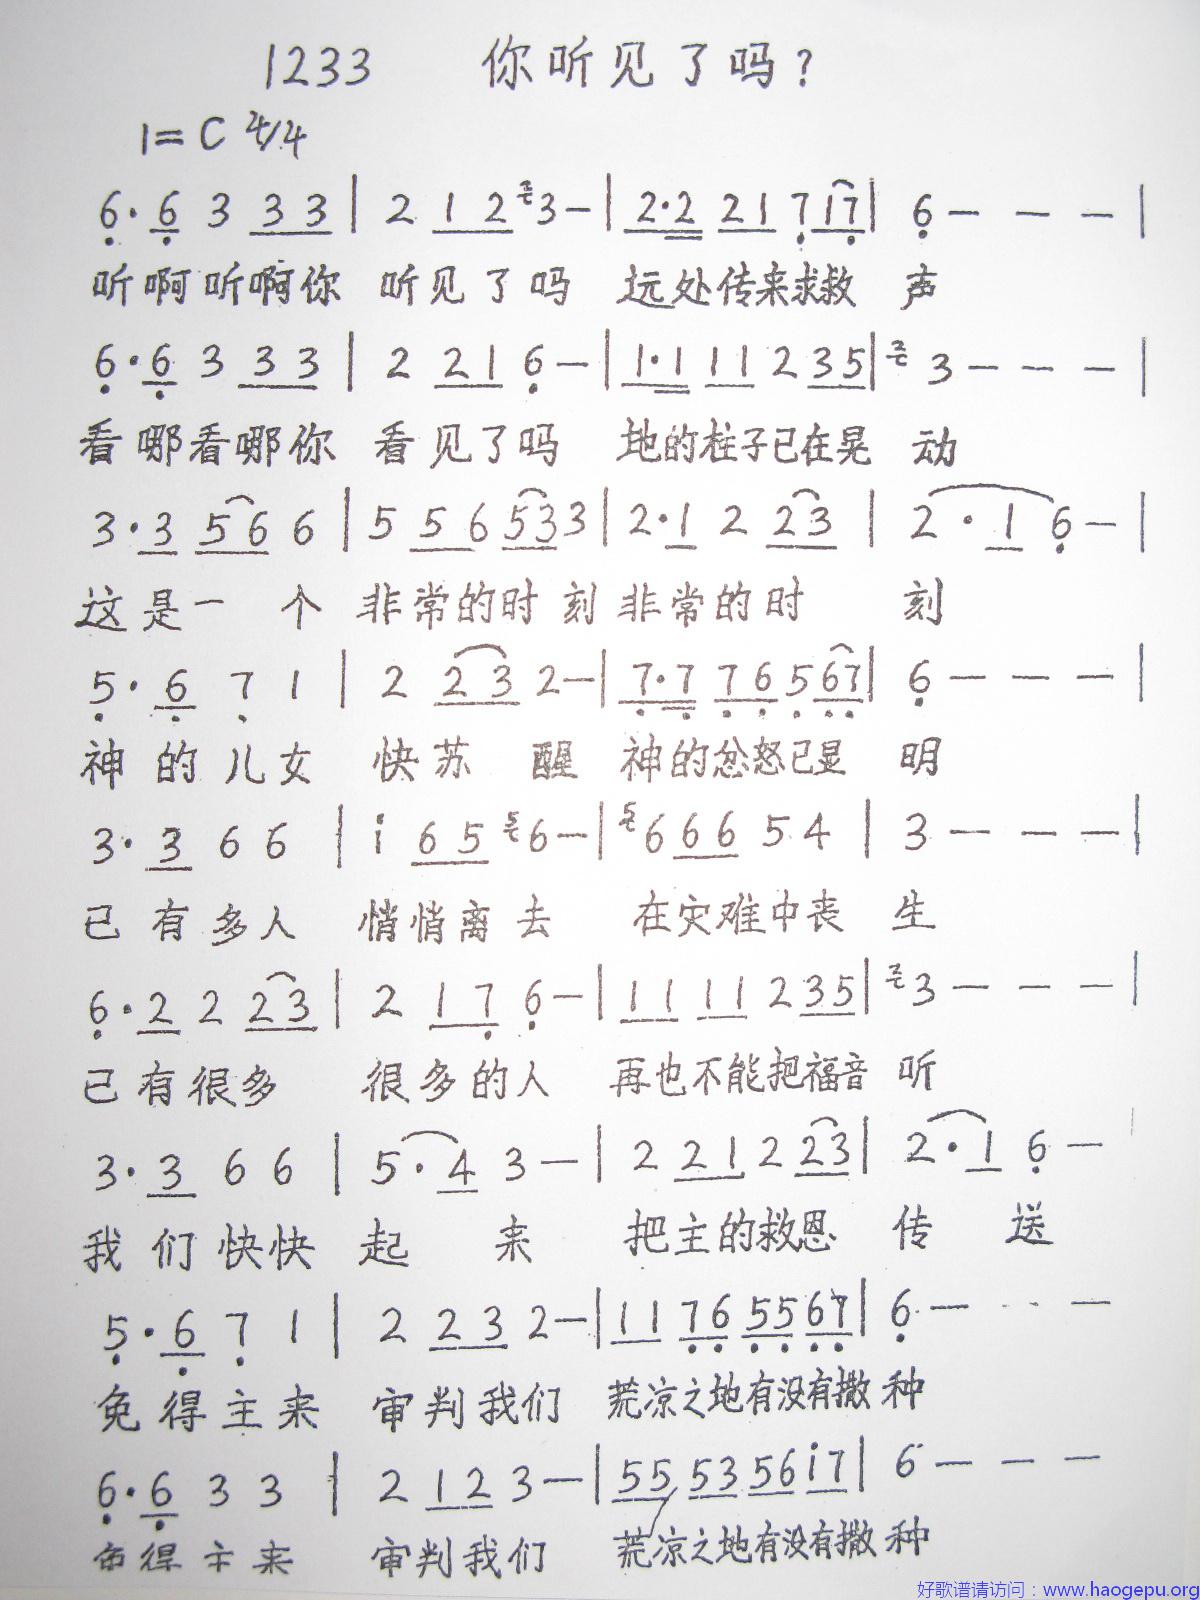 1233 你听见了吗?
1=C 4/4
6·6 3 33 | 2 12 3 3— | 2·2 21 7 17 | 6 — — — |
听啊听啊你 听见了吗 远处传来求救 声
6·6 3 33 | 2 21 6— | 1·1 11 2 35 | 2 3 — — — |
看哪看哪你 看见了吗 地的柱子已在晃 动
3·3 56 6 | 5 56 53 3 | 2·1 2 23 | 2·1 6— |
这是一个 非常的时刻 非常的时 刻
5·6 7 1 | 2 23 2— | 7·7 76 5 67 | 6 — — — |
神的儿女 快苏醒 神的忿怒已显 明
3·3 6 6 | i 65 5 6— | 5 6 66 5 4 | 3 — — — |
已有多人 悄悄离去 在灾难中丧 生
6·2 2 23 | 2 17 6— | 11 11 2 35 | 2 3 — — — |
已有很多 很多的人 再也不能把福音 听
3·3 6 6 | 5·4 3— | 2 21 2 23 | 2·1 6 —
我们快快 起来 把主的救恩 传送
5·6 7 1 | 2 23 2— | 11 76 55 67 | 6 — — —
免得主来 审判我们 荒凉之地有没有撒 种
6·6 3 3 | 2 12 3— | 55 53 56 i7 | 6 — — —
免得主来 审判我们 荒凉之地有没有撒 种
好歌谱请访问：www.haogepu.org